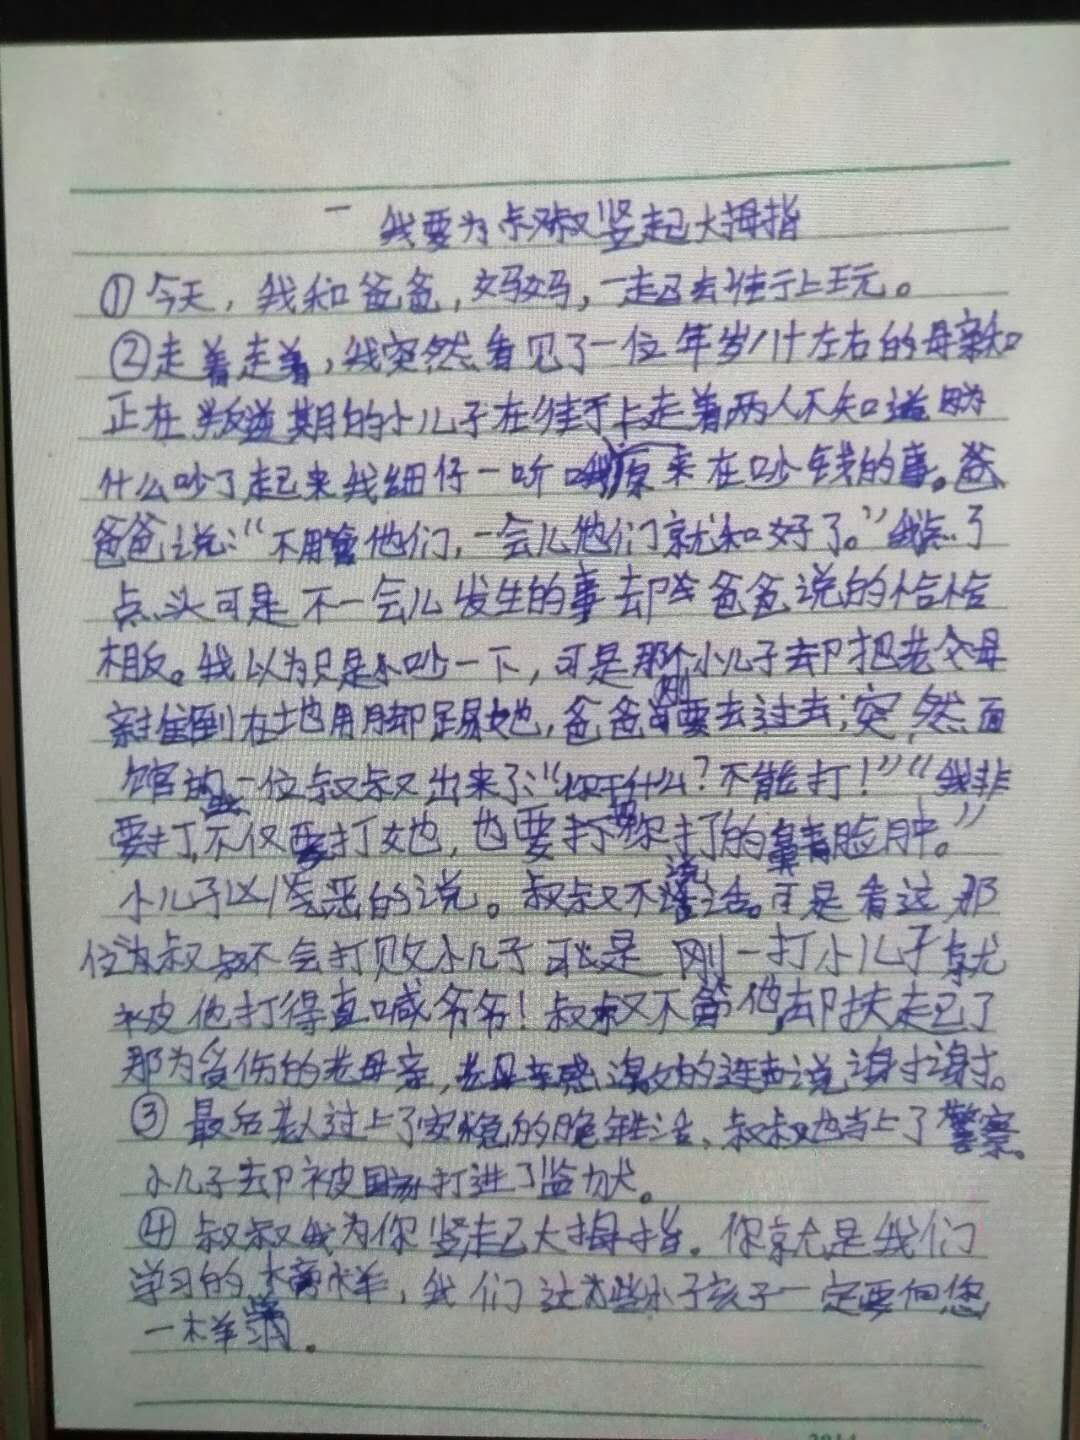 一 我要为叔叔竖起大拇指
①今天，我和爸爸，妈妈，一起去街上玩。
②走着走着，我突然看见了一位年岁八十左右的母亲和
正在叛逆期的小儿子在街上走着两人不知道因为
什么吵了起来我细仔一听原来在吵钱的事。爸
爸爸说：“不用管他们，一会儿他们就和好了。”我点了
点头可是不一会儿发生的事却与爸爸说的恰恰
相反。我以为只是小吵一下，可是那个小儿子却把老父母
亲推倒在地用脚踢她，爸爸刚要去过去；突然面
馆的一位叔叔出来了：“你干什么？不能打！”“我非
要打，不仅要打她，也要打你打的鼻青脸肿。”
小儿子凶恶的说。叔叔不说话。可是看这那
位叔叔不会打败小儿子可是刚一打小儿子就
被他打得直喊爷爷！叔叔不管他却扶走己了
那为受伤的老母亲，老母亲感激的连声说谢谢。
③最后老人过上了安稳的晚年生活，叔叔也当上了警察。
小儿子却被打进了监狱。
④叔叔我为你竖起大拇指。你就是我们
学习的榜样，我们这些小孩子一定要向您
一样。